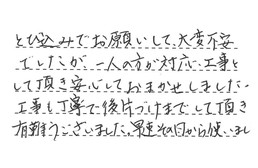 とび込みでお願いして、大変不安
でしたが、一人の方が対応、工事と
して頂き安心しておまかせしました。
工事も丁寧で後片づけまでして頂き
有難うございました。早速その日から使いまし